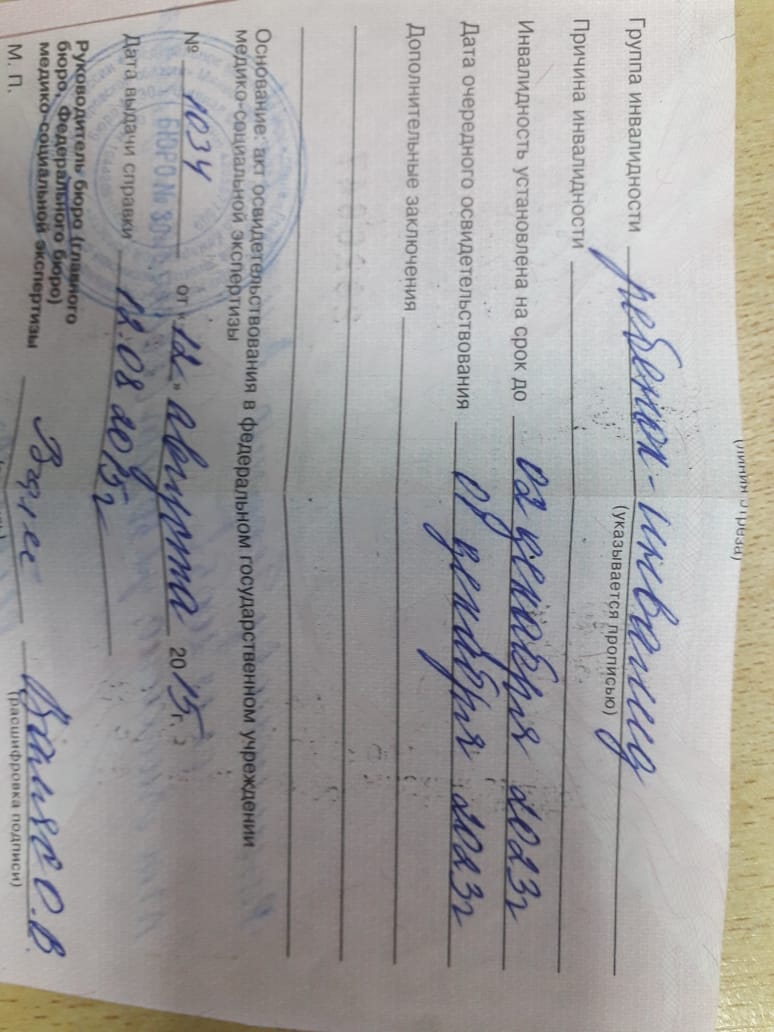 (линия отреза)
Группа инвалидности ребенок-инвалид
(указывается прописью)
Причина инвалидности
Инвалидность установлена на срок до 02 декабря 2023г
Дата очередного освидетельствования 02 декабря 2023г
Дополнительные заключения
Основание: акт освидетельствования в федеральном государственном учреждении
медико-социальной экспертизы
№ 1034 от «12» августа 2015г.
Дата выдачи справки 12.08 2015г
Руководитель бюро (главного
бюро, Федерального бюро)
медико-социальной экспертизы
О.В.
(расшифровка подписи)
М. П.
БЮРО №